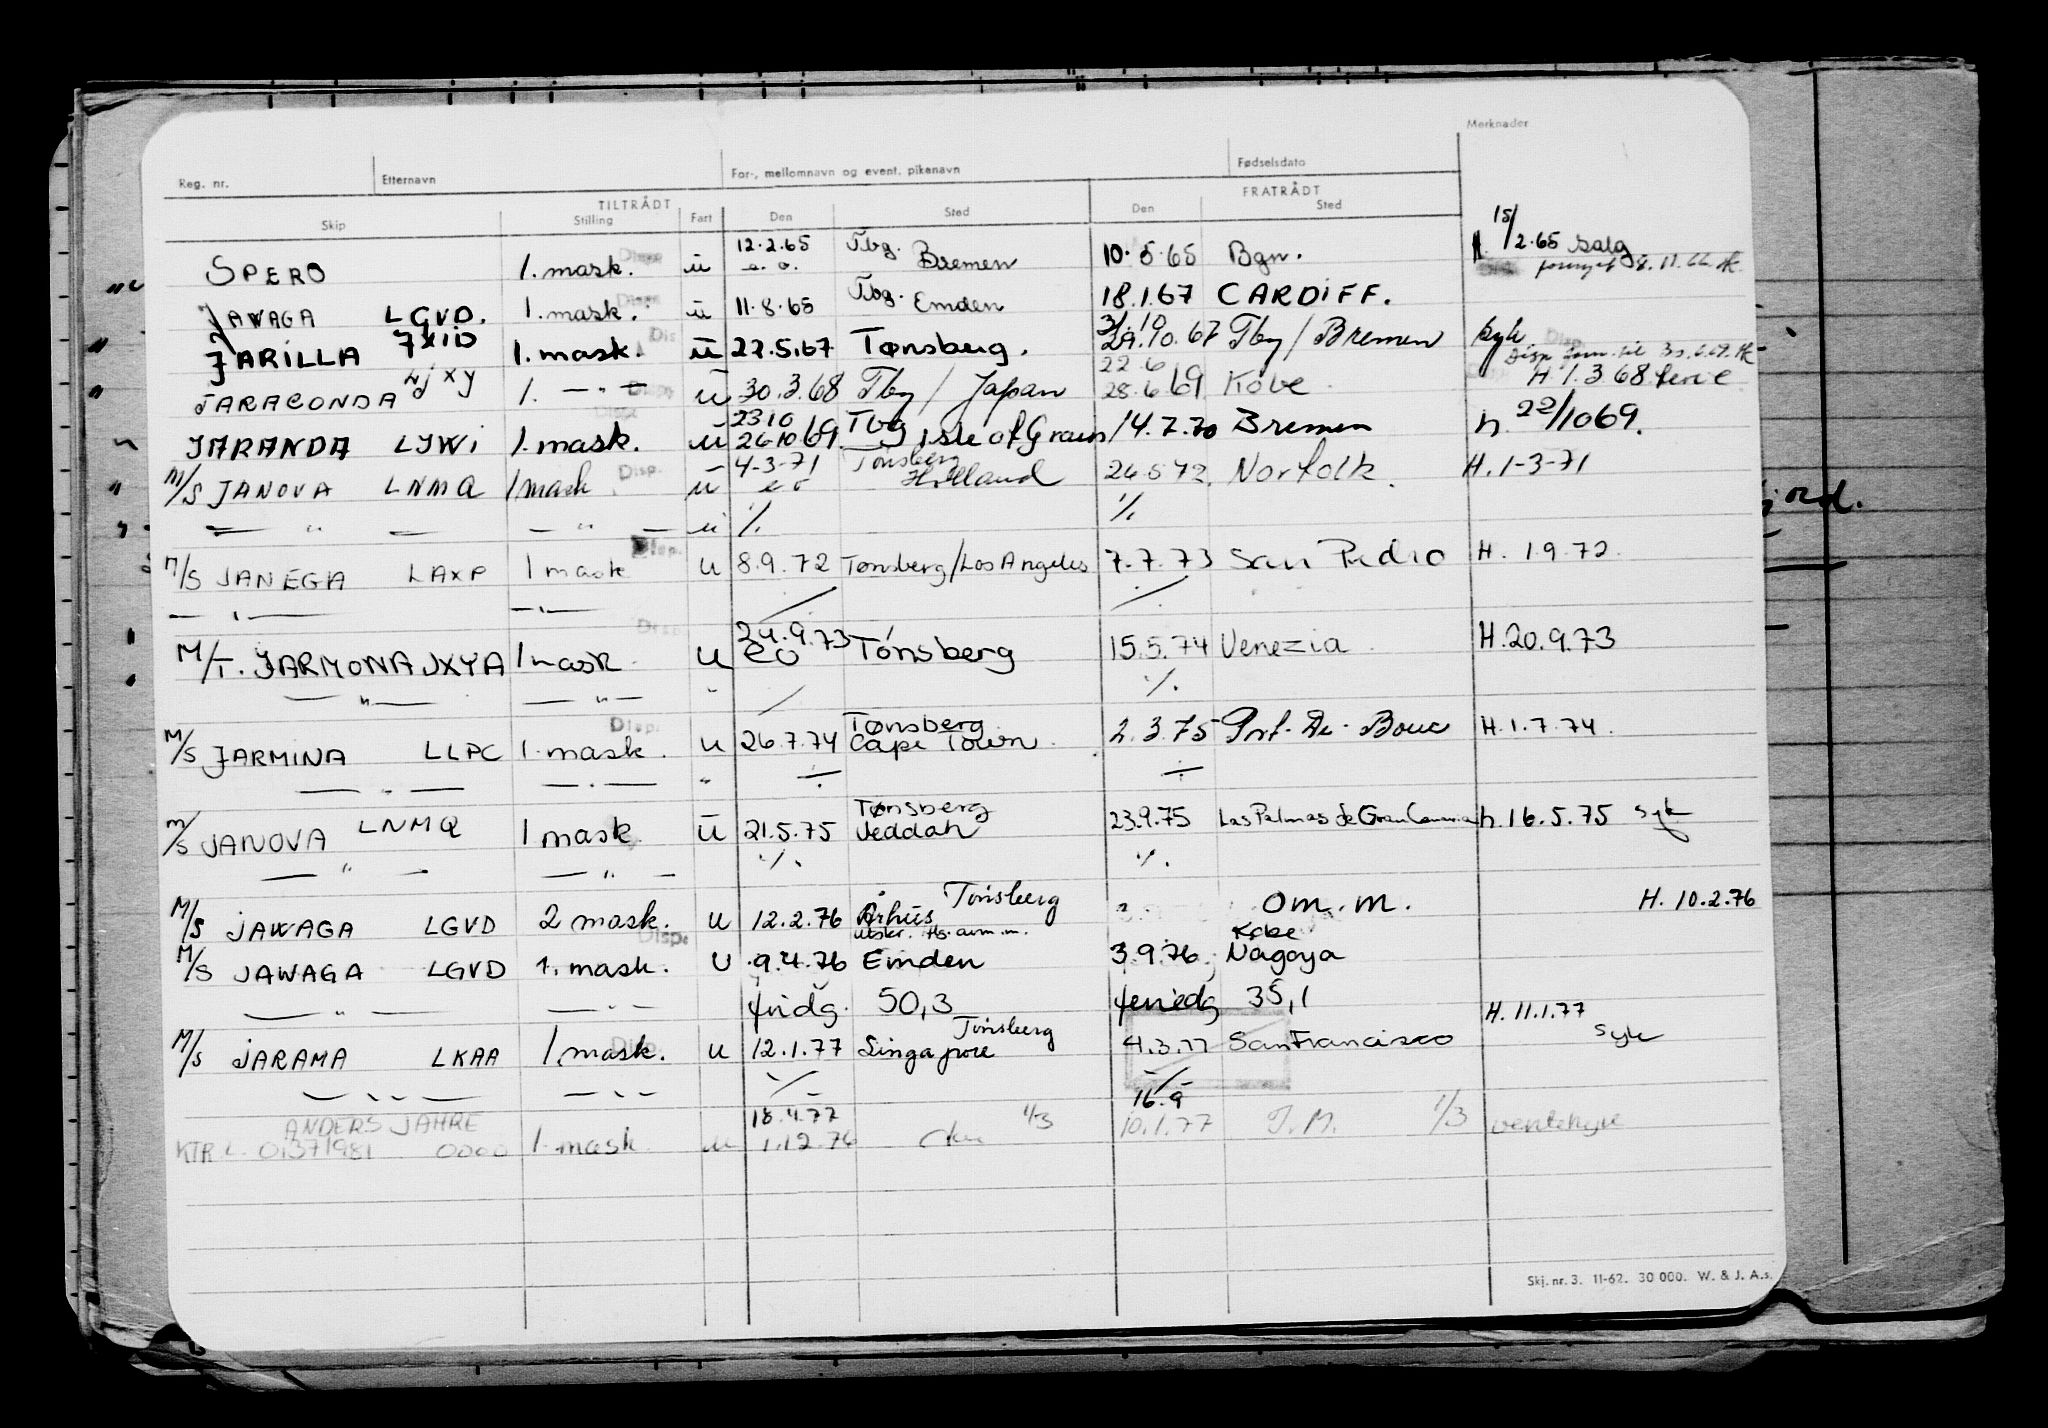 Merknader
Reg. nr. Etternavn For-, mellomnavn og event. pikenavn Fødselsdato
TILTRÅDT FRATRÅDT
Skip Stilling Fart Den Sted Den Sted
SPERO 1. mask. Disp. u 12.2.65 e.o. Tbg. Bremen 10.5.65 Bgn. 15/2.65 salg
JAWAGA LGVD. 1. mask. Disp. u 11.8.65 Tbg. Emden 18.1.67 CARDIFF.
JARILLA JXID 1. mask. Dis u 22.5.67 Tønsberg. 67 Tbg / Bremen syk Disp
JARACONDA LJXY 1. — " — Disp. u 30.3.68 Tbg / Japan 22.6 28.6.69 Kobe H 1.3.68 ferie
JARANDA LJWI 1. mask. u 2310 261069. Tbg Isle of Grain 14.7.70 Bremen h. 22/1069.
M/S JANOVA LNMQ 1 mask Disp. u 4-3-71 e o Tønsberg Holland 26.5.72. Norfolk. H. 1-3-71
— " — — " — u ./. ./.
M/S JANEGA LAXP 1 mask Disp. u 8.9.72 Tønsberg/Los Angeles 7.7.73 San Pedro H. 1.9.72.
— " — — " —
M/T. JARMONA JXYA 1 mask Disp. u 24.9.73 eo Tønsberg 15.5.74 Venezia. H. 20.9.73
— " — — " — " ./.
M/S JARMINA LLPC 1. mask. Disp. u 26.7.74 Tønsberg Cape Town. 2.3.75 Port-De-Bouc H. 1.7.74.
— " — — " — " ./. ./.
M/S JANOVA LNMQ 1 mask. u 21.5.75 Tønsberg Jeddah 23.9.75 Las Palmas de Gran Canaria h. 16.5.75 syk
— " — — " — ./. ./.
M/S JAWAGA LGVD 2 mask. u 12.2.76 Tønsberg Århus om. m. H. 10.2.76
M/S JAWAGA LGVD 1. mask. Disp. u 9.4.76 Emden 3.9.76. Kobe Nagoya
— " — — " — fridg. 50,3 feriedg 35,1
M/S JARAMA LKAA 1 mask. Disp. u 12.1.77 Tønsberg Singapore 4.3.77 San Francisco H. 11.1.77 syk
— " — — " — ./. ./.
ANDERS JAHRE 18.4.77 1/3 16.9
KTR L. 01371981 0000 1. mask. u 1.12.76 10.1.77 T.M. 1/3 ventehyre
Skj. nr. 3. 11-62. 30 000. W. & J. A.s.